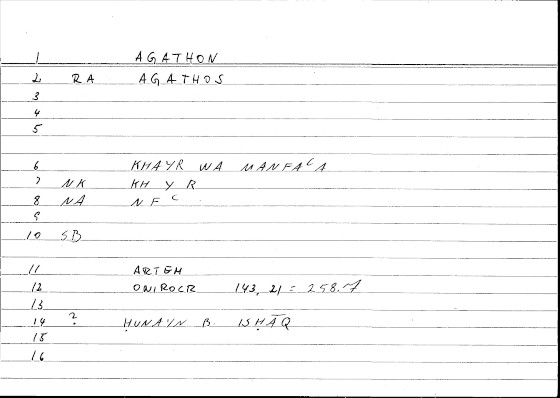 1 AGATHON
2 RA AGATHOS
3
4
5
6 KHAYR WA MANFAᶜA
7 NK KH Y R
8 NA N F ᶜ
9
10 SB
11 ARTEM
12 ONIROCR 143, 21 = 258.7
13
14 ? ḤUNAYN B. ISḤĀQ
15
16